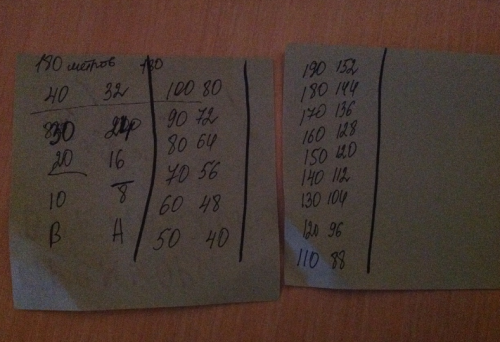 180 метров 180
40 32 100 80
30 24 90 72
20 16 80 64
10 8 70 56
В А 60 48
50 40
190 152
180 144
170 136
160 128
150 120
140 112
130 104
120 96
110 88